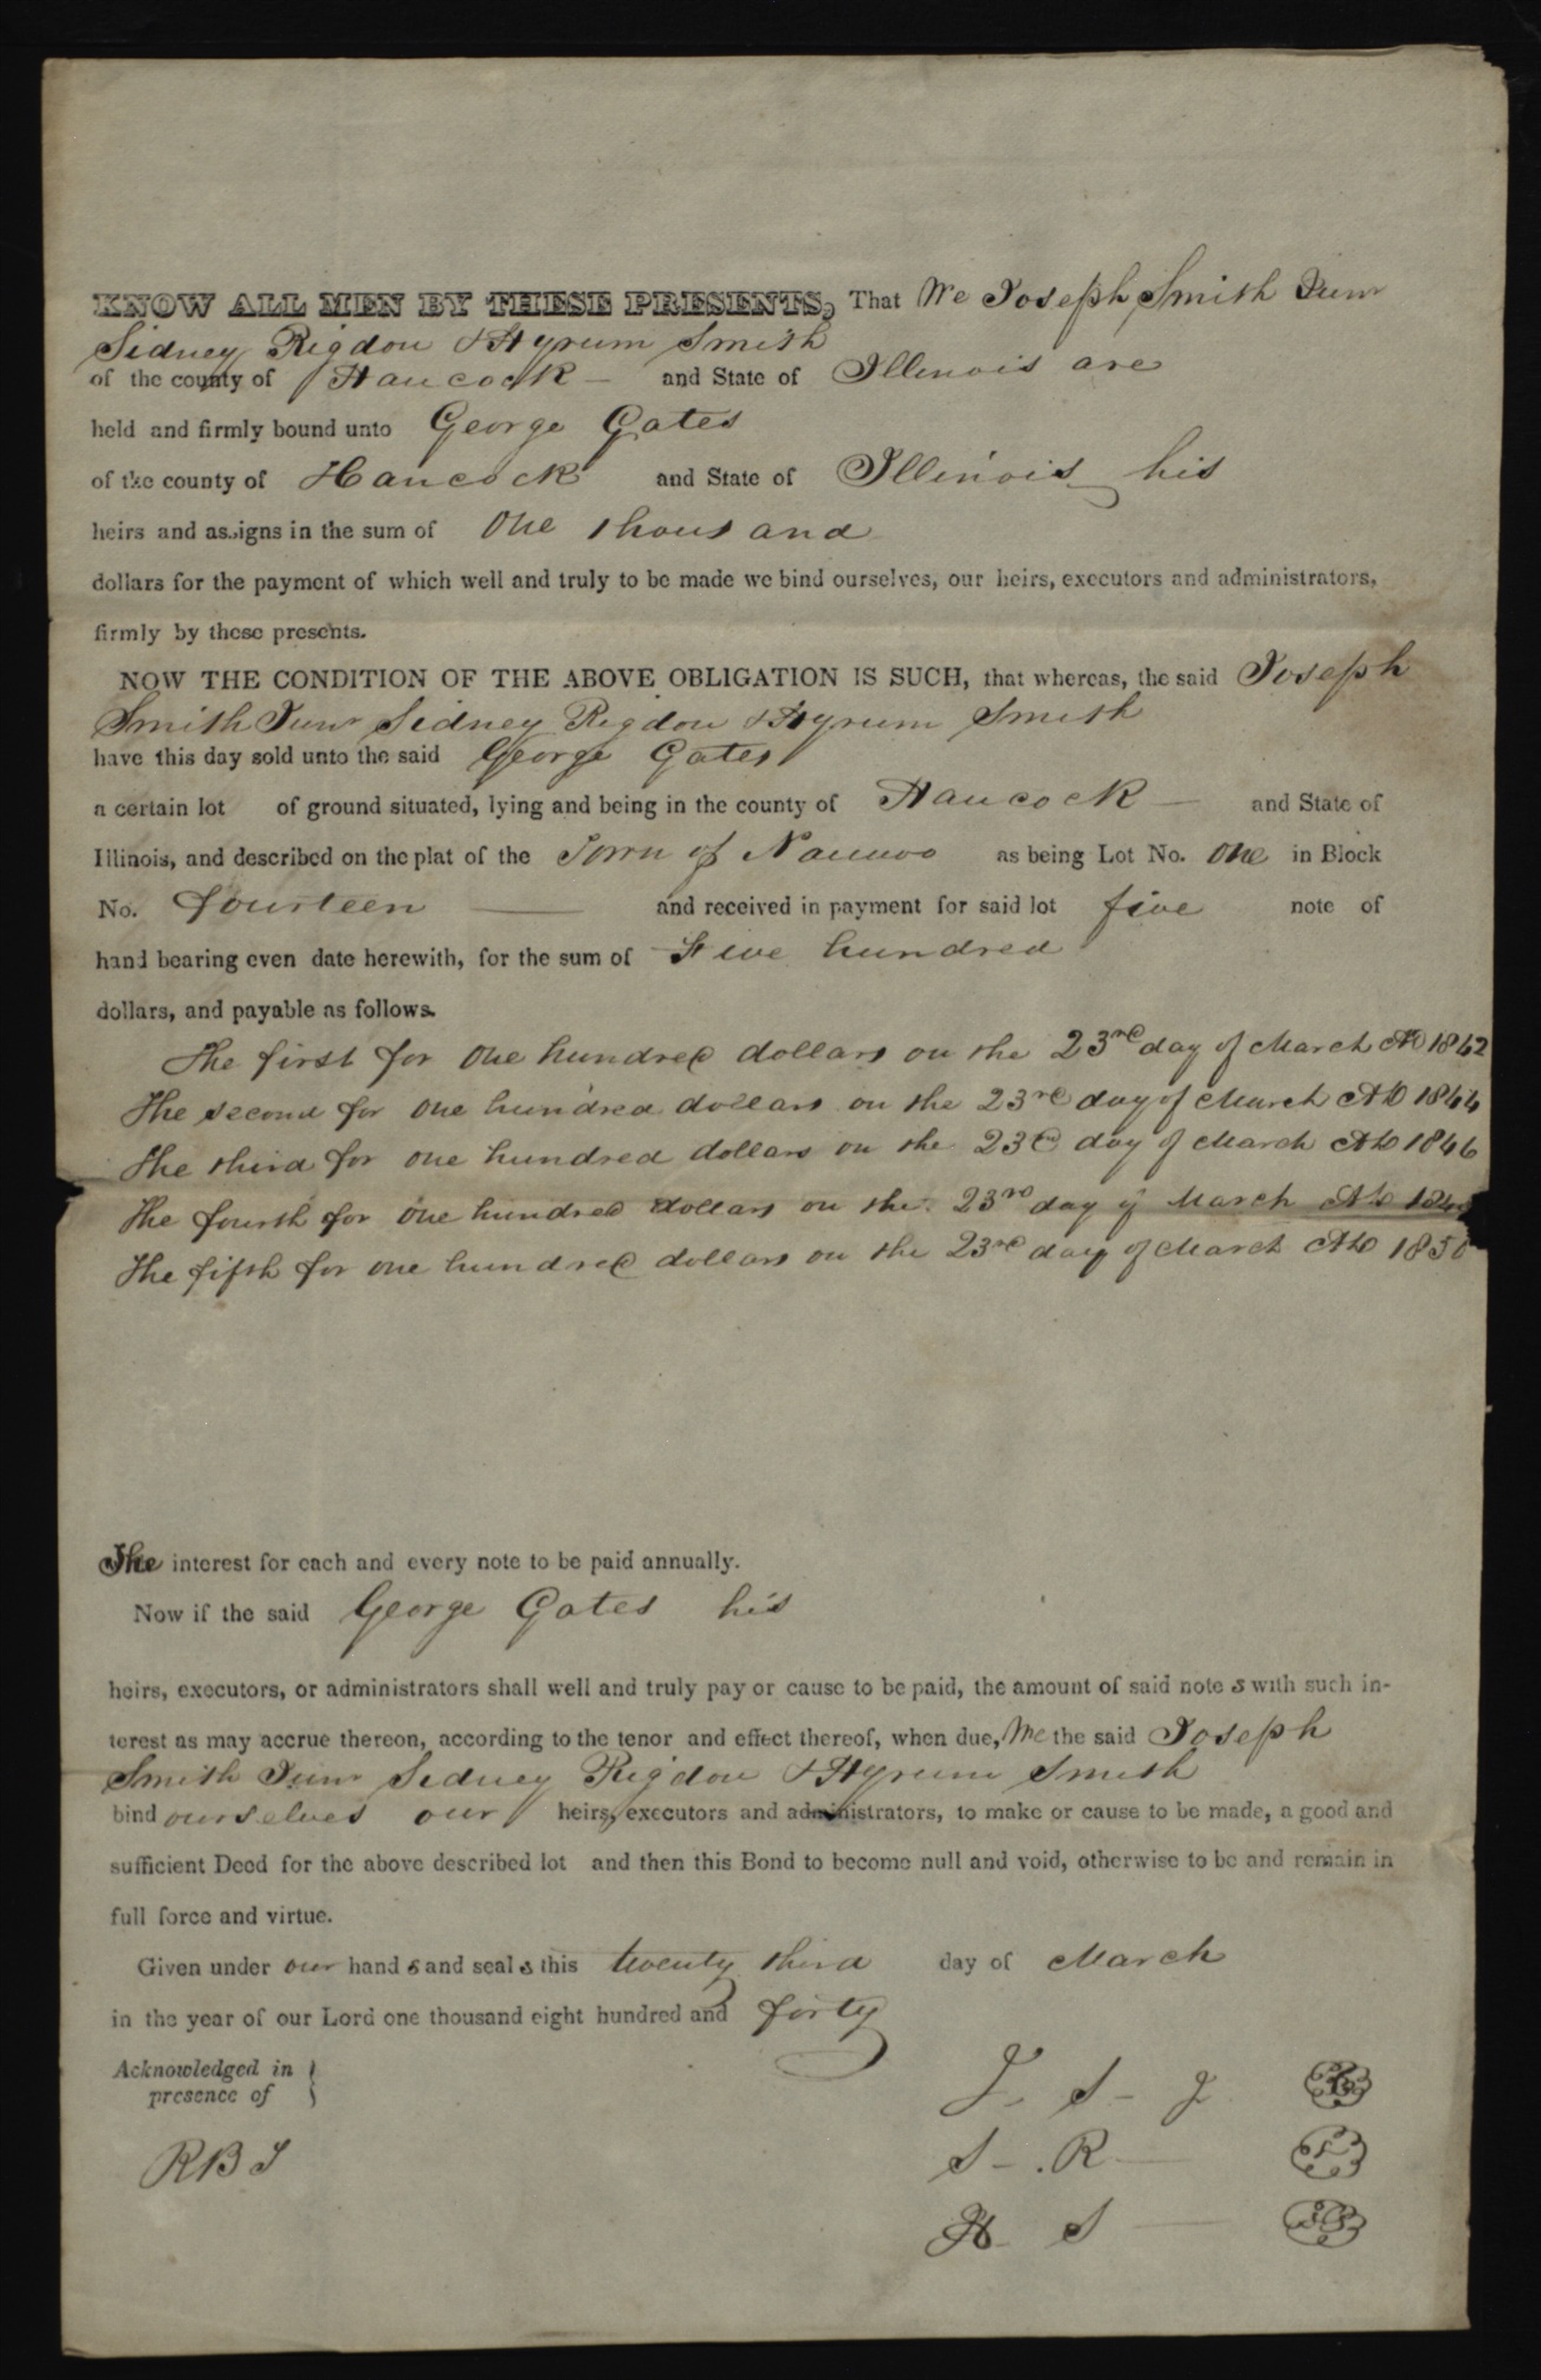 KNOW ALL MEN BY THESE PRESENTS, That We Joseph Smith Junr
Sidney Rigdon & Hyrum Smith
of the county of Hancock — and State of Illinois are
held and firmly bound unto George Gates
of the county of Hancock and State of Illinois his
heirs and assigns in the sum of One thousand
dollars for the payment of which well and truly to be made we bind ourselves, our heirs, executors and administrators,
firmly by these presents.
NOW THE CONDITION OF THE ABOVE OBLIGATION IS SUCH, that whereas, the said Joseph
Smith Junr Sidney Rigdon & Hyrum Smith
have this day sold unto the said George Gates
a certain lot of ground situated, lying and being in the county of Hancock — and State of
Illinois, and described on the plat of the Town of Nauvoo as being Lot No. One in Block
No. fourteen — and received in payment for said lot five note of
hand bearing even date herewith, for the sum of Five hundred
dollars, and payable as follows.
The first for One hundred dollars on the 23rd day of March AD 1842
The second for One hundred dollars on the 23rd day of March AD 1844
The third for one hundred dollars on the 23d day of March AD 1846
The fourth for One hundred dollars on the 23rd day of March AD
The fifth for one hundred dollars on the 23rd day of March AD 1850
The interest for each and every note to be paid annually.
Now if the said George Gates his
heirs, executors, or administrators shall well and truly pay or cause to be paid, the amount of said note s with such in-
terest as may accrue thereon, according to the tenor and effect thereof, when due, We the said Joseph
Smith Junr Sidney Rigdon & Hyrum Smith
bind ourselves our heirs, executors and administrators, to make or cause to be made, a good and
sufficient Deed for the above described lot and then this Bond to become null and void, otherwise to be and remain in
full force and virtue.
Given under our hand s and seal s this twenty third day of March
in the year of our Lord one thousand eight hundred and forty
Acknowledged in
presence of
J. S - J
S - . R —
R B T
H S —